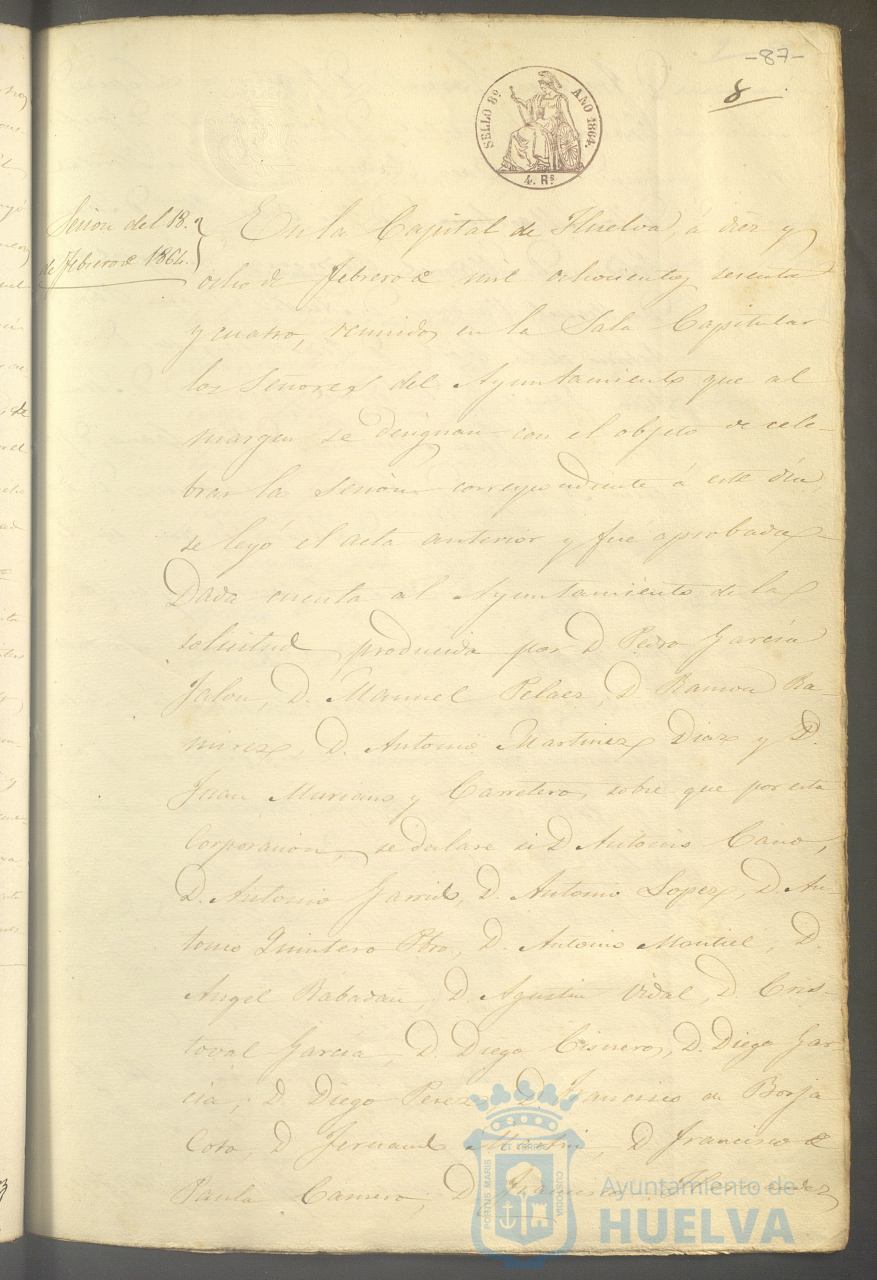 -87-
8
SELLO 8º AÑO 1864.
4. Rs
Sesion del 18.
de Febrero de 1864.
En la Capital de Huelva, á diez y
ocho de Febrero de mil ochocientos sesenta
y cuatro, reunidos en la Sala Capitular
los Señores del Ayuntamiento que al
margen se designan con el objeto de cele-
brar la sesion correspondiente á este dia,
se leyó el acta anterior y fué aprobada
Dada cuenta al Ayuntamiento de la
solicitud producida por D. Pedro Garcia
Jalon, D. Manuel Pelaez, D. Ramon Ra-
mirez, D. Antonio Martinez Diaz y D.
Juan Mariano y Carretero, sobre que por esta
Corporacion, se declare si D Antonio Cano,
D. Antonio Garrido, D. Antonio Lopez, D. An-
tonio Quintero Pbro., D. Antonio Montiel, D.
Angel Rabadan, D. Agustin Vidal, D. Cris-
toval Garcia, D. Diego Cisneros, D. Diego Gar-
cia, D. Diego Perez, D. Francisco de Borja
Coto D Fernando Martin, D Francisco de
Paula Camero, D. Francisco Hernandez
PORTUS MARIS ET TERRAE CUSTODIA
Ayuntamiento de
HUELVA